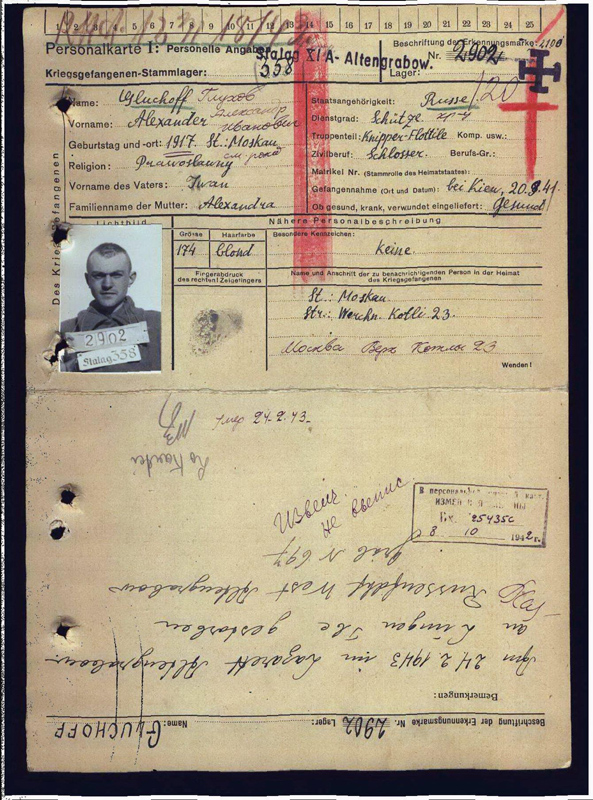 1 2 3 4 5 6 7 8 9 10 11 12 13 14 15 16 17 18 19 20 21 22 23 24 25
Personalkarte I: Personelle Angaben
Stalag XI A - Altengrabow.
Beschriftung der Erkennungsmarke
Kriegsgefangenen-Stammlager: 358
Nr. 2902
Lager:
120
Des Kriegsgefangenen
Name: Gluchoff Глухов
Vorname: Alexander Александр
Иванович
Geburtstag und -ort: 1917. St: Moskau
Religion: Prawoslawny
Vorname des Vaters: Iwan
Familienname der Mutter: Alexandra
Staatsangehörigkeit: Russe
Dienstgrad: Schütze
Truppenteil: Knipper-Flottile Komp. usw.:
Zivilberuf: Schlosser. Berufs-Gr.:
Matrikel Nr. (Stammrolle des Heimatstaates):
Gefangennahme (Ort und Datum): bei Kiew, 20.9.41.
Ob gesund, krank, verwundet eingeliefert: Gesund
Lichtbild
Nähere Personalbeschreibung
Grösse
Haarfarbe
Besondere Kennzeichen:
174
blond
Keine.
Fingerabdruck
des rechten! Zeigefingers
Name und Anschrift der zu benachrichtigenden Person in der Heimat
des Kriegsgefangenen
St.: Moskau.
Str.: Werchn. Kotli 23.
Москва Верх Котлы 23
Wenden!
2902
Stalag 358
умер 24.2.43
Извещ.
не
В персональной
25435с
8 10 1942 г.
Grab N 697
Russenfriedhof West Altengrabow
an Lungen Tbc gestorben
Am 24.2.1943 im Lazarett Altengrabow
Bemerkungen:
Beschriftung der Erkennungsmarke Nr. 2902 Lager:
Name: GLUCHOFF